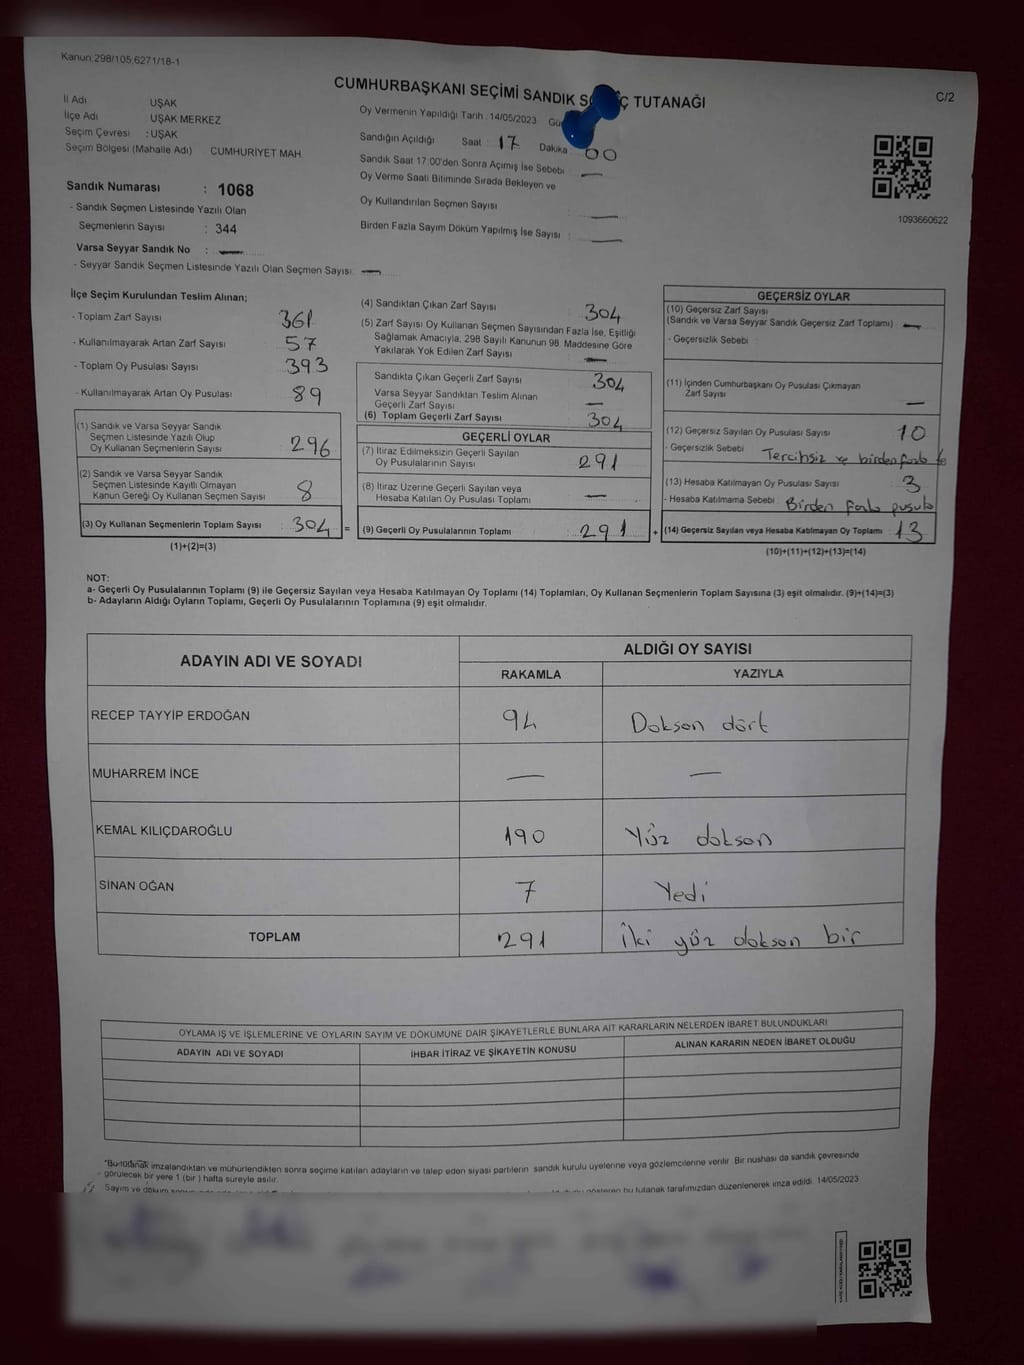 Kanun:298/105,6271/18-1
CUMHURBAŞKANI SEÇİMİ SANDIK TUTANAĞI
C/2
İl Adı : UŞAK
İlçe Adı : UŞAK MERKEZ
Seçim Çevresi : UŞAK
Seçim Bölgesi (Mahalle Adı) CUMHURİYET MAH.
Sandık Numarası : 1068
- Sandık Seçmen Listesinde Yazılı Olan
Seçmenlerin Sayısı : 344
Varsa Seyyar Sandık No : —
- Seyyar Sandık Seçmen Listesinde Yazılı Olan Seçmen Sayısı: —
Oy Vermenin Yapıldığı Tarih : 14/05/2023
Sandığın Açıldığı Saat : 17 Dakika : 00
Sandık Saat 17:00'den Sonra Açımış İse Sebebi : —
Oy Verme Saati Bitiminde Sırada Bekleyen ve
Oy Kullandırılan Seçmen Sayısı : —
Birden Fazla Sayım Döküm Yapılmış İse Sayısı : —
1093660622
İlçe Seçim Kurulundan Teslim Alınan;
- Toplam Zarf Sayısı 361
- Kullanılmayarak Artan Zarf Sayısı 57
- Toplam Oy Pusulası Sayısı 393
- Kullanılmayarak Artan Oy Pusulası 89
(1) Sandık ve Varsa Seyyar Sandık
Seçmen Listesinde Yazılı Olup
Oy Kullanan Seçmenlerin Sayısı : 296
(2) Sandık ve Varsa Seyyar Sandık
Seçmen Listesinde Kayıtlı Olmayan
Kanun Gereği Oy Kullanan Seçmen Sayısı : 8
(3) Oy Kullanan Seçmenlerin Toplam Sayısı : 304 =
(1)+(2)=(3)
(4) Sandıktan Çıkan Zarf Sayısı : 304
(5) Zarf Sayısı Oy Kullanan Seçmen Sayısından Fazla İse, Eşitliği
Sağlamak Amacıyla, 298 Sayılı Kanunun 98. Maddesine Göre
Yakılarak Yok Edilen Zarf Sayısı : —
Sandıkta Çıkan Geçerli Zarf Sayısı 304
Varsa Seyyar Sandıktan Teslim Alınan
Geçerli Zarf Sayısı : —
(6) Toplam Geçerli Zarf Sayısı : 304
GEÇERLİ OYLAR
(7) İtiraz Edilmeksizin Geçerli Sayılan
Oy Pusulalarının Sayısı : 291
(8) İtiraz Üzerine Geçerli Sayılan veya
Hesaba Katılan Oy Pusulası Toplamı : —
(9) Geçerli Oy Pusulalarının Toplamı : 291 +
GEÇERSİZ OYLAR
(10) Geçersiz Zarf Sayısı
(Sandık ve Varsa Seyyar Sandık Geçersiz Zarf Toplamı) : —
- Geçersizlik Sebebi :
(11) İçinden Cumhurbaşkanı Oy Pusulası Çıkmayan
Zarf Sayısı : —
(12) Geçersiz Sayılan Oy Pusulası Sayısı : 10
- Geçersizlik Sebebi : Tercihsiz ve birden fazla
(13) Hesaba Katılmayan Oy Pusulası Sayısı : 3
- Hesaba Katılmama Sebebi : Birden fazla pusula
(14) Geçersiz Sayılan veya Hesaba Katılmayan Oy Toplamı : 13
(10)+(11)+(12)+(13)=(14)
NOT:
a- Geçerli Oy Pusulalarının Toplamı (9) ile Geçersiz Sayılan veya Hesaba Katılmayan Oy Toplamı (14) Toplamları, Oy Kullanan Seçmenlerin Toplam Sayısına (3) eşit olmalıdır. (9)+(14)=(3)
b- Adayların Aldığı Oyların Toplamı, Geçerli Oy Pusulalarının Toplamına (9) eşit olmalıdır.
ADAYIN ADI VE SOYADI
ALDIĞI OY SAYISI
RAKAMLA YAZIYLA
RECEP TAYYİP ERDOĞAN 94 Doksan dört
MUHARREM İNCE — —
KEMAL KILIÇDAROĞLU 190 Yüz doksan
SİNAN OĞAN 7 Yedi
TOPLAM 291 İki yüz doksan bir
OYLAMA İŞ VE İŞLEMLERİNE VE OYLARIN SAYIM VE DÖKÜMÜNE DAİR ŞİKAYETLERLE BUNLARA AİT KARARLARIN NELERDEN İBARET BULUNDUKLARI
ADAYIN ADI VE SOYADI İHBAR İTİRAZ VE ŞİKAYETİN KONUSU ALINAN KARARIN NEDEN İBARET OLDUĞU
*Bu tutanak imzalandıktan ve mühürlendikten sonra seçime katılan adayların ve talep eden siyasi partilerin sandık kurulu üyelerine veya gözlemcilerine verilir. Bir nushası da sandık çevresinde
görülecek bir yere 1 (bir ) hafta süreyle asılır.
Sayım ve döküm gösteren bu tutanak tarafımızdan düzenlenerek imza edildi. 14/05/2023